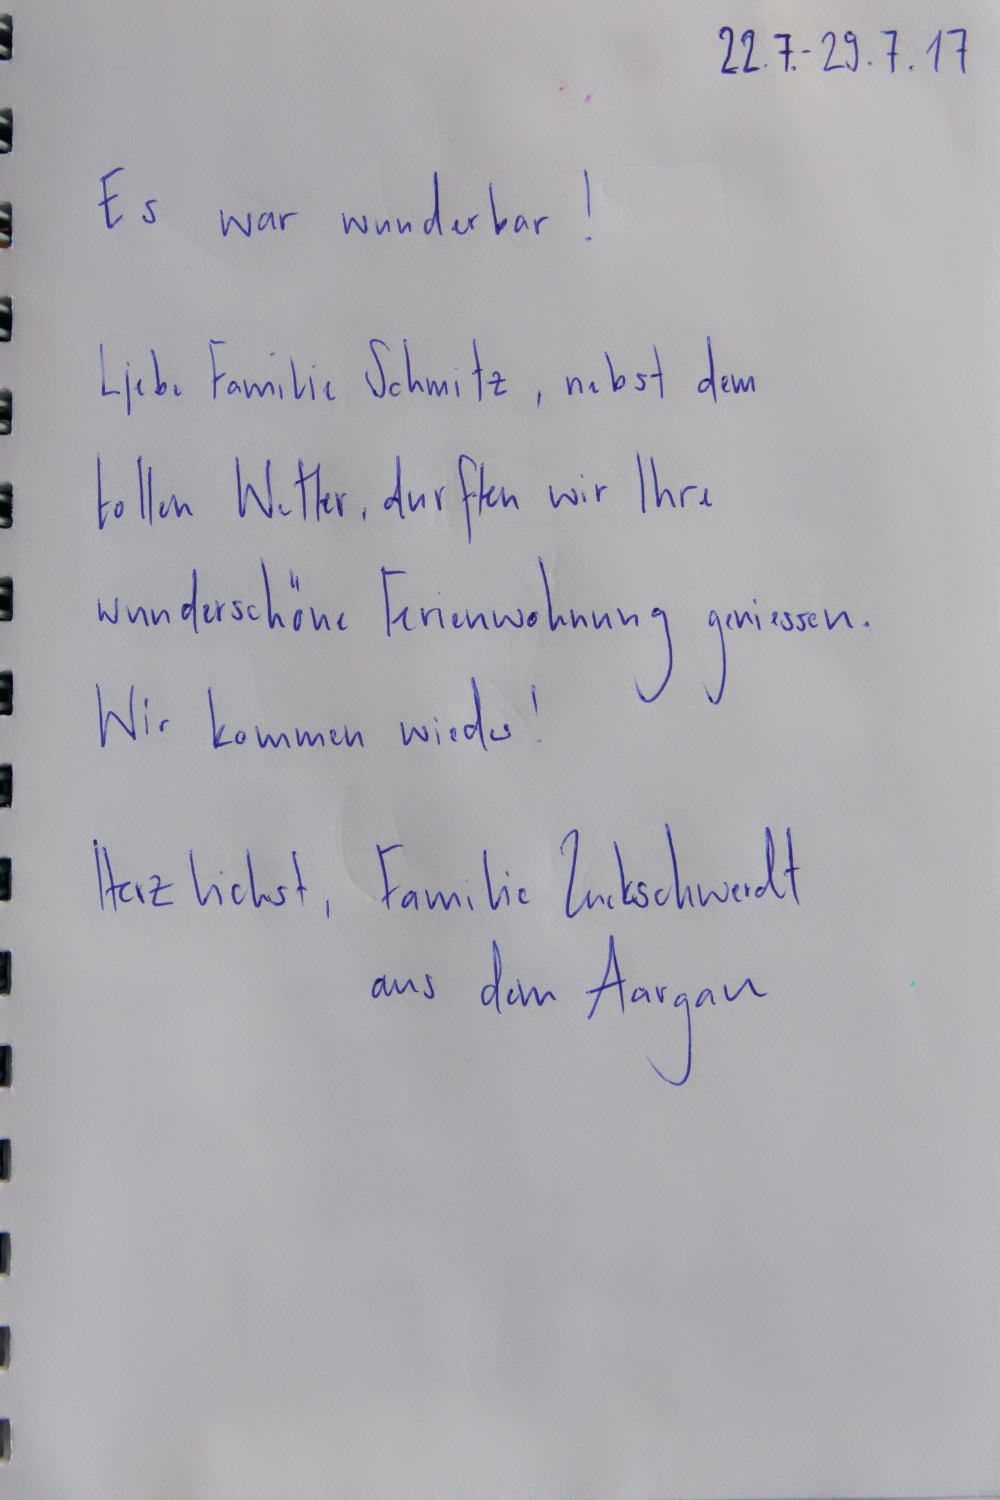 22.7.-29.7.17
Es war wunderbar!
Liebe Familie Schmitz, nebst dem
tollen Wetter, durften wir Ihre
wunderschöne Ferienwohnung geniessen.
Wir kommen wieder!
Herzlichst, Familie Zuckschwerdt
aus dem Aargau